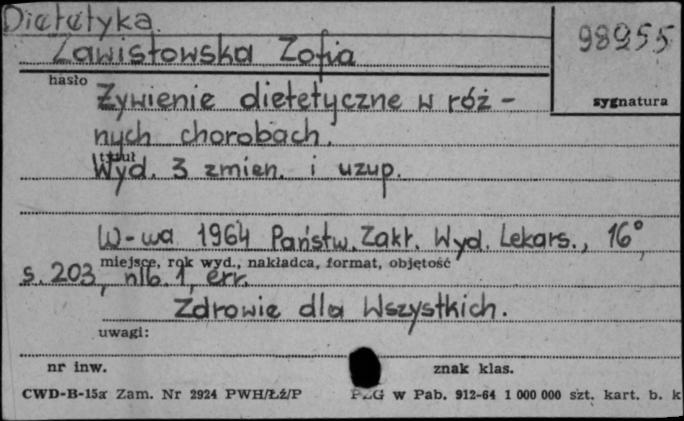 Dietetyka
98955
Zawistowska Zofia
hasło
sygnatura
Żywienie dietetyczne w róż-
nych chorobach.
tytuł
Wyd. 3 zmien. i uzup.
W-wa 1964 Państw. Zakł. Wyd. Lekars., 16°,
miejsce, rok wyd., nakładca, format, objętość
s. 203, nlb. 1, err.
Zdrowie dla Wszystkich.
uwagi:
nr inw.
znak klas.
CWD-B-15a Zam. Nr 2924 PWH/Łź/P
PZG w Pab. 912-64 1 000 000 szt. kart. b. k